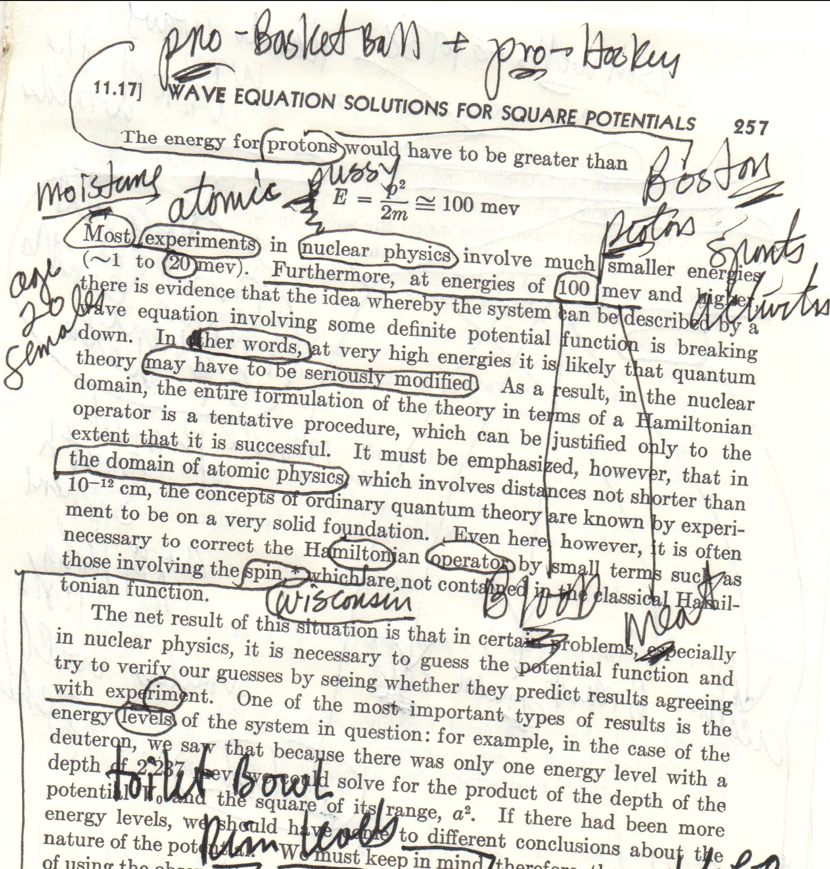 pro-Basketball + pro-Hockey
11.17] WAVE EQUATION SOLUTIONS FOR SQUARE POTENTIALS 257
The energy for protons would have to be greater than
Boston
moisture
atomic
pussy
E = p²/2m ≅ 100 mev
protons
sports
activites
Most experiments in nuclear physics involve much smaller energies
(∼1 to 20 mev). Furthermore, at energies of 100 mev and higher
age
20
females
there is evidence that the idea whereby the system can be described by a
wave equation involving some definite potential function is breaking
down. In other words, at very high energies it is likely that quantum
theory may have to be seriously modified. As a result, in the nuclear
domain, the entire formulation of the theory in terms of a Hamiltonian
operator is a tentative procedure, which can be justified only to the
extent that it is successful. It must be emphasized, however, that in
the domain of atomic physics, which involves distances not shorter than
10⁻¹² cm, the concepts of ordinary quantum theory are known by experi-
ment to be on a very solid foundation. Even here, however, it is often
necessary to correct the Hamiltonian operator by small terms such as
those involving the spin,* which are not contained in the classical Hamil-
tonian function.
Wisconsin
Blood
Meat
The net result of this situation is that in certain problems, especially
in nuclear physics, it is necessary to guess the potential function and
try to verify our guesses by seeing whether they predict results agreeing
with experiment. One of the most important types of results is the
energy levels of the system in question: for example, in the case of the
deuteron, we saw that because there was only one energy level with a
depth of 2.237 mev, we could solve for the product of the depth of the
toilet Bowl
potential and the square of its range, a². If there had been more
energy levels, we should have come to different conclusions about the
Rim levels
nature of the potential. We must keep in mind, therefore,
of using the